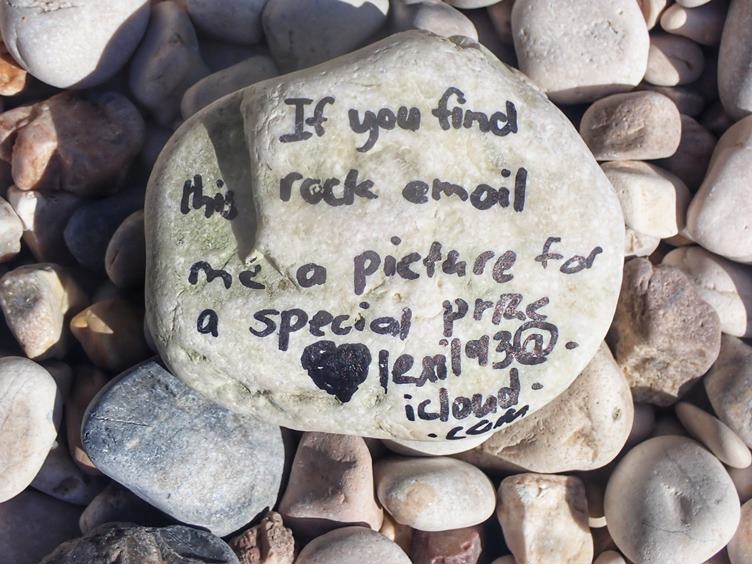 If you find
this rock email
me a picture for
a special prize
lexi193@.
icloud.
.com